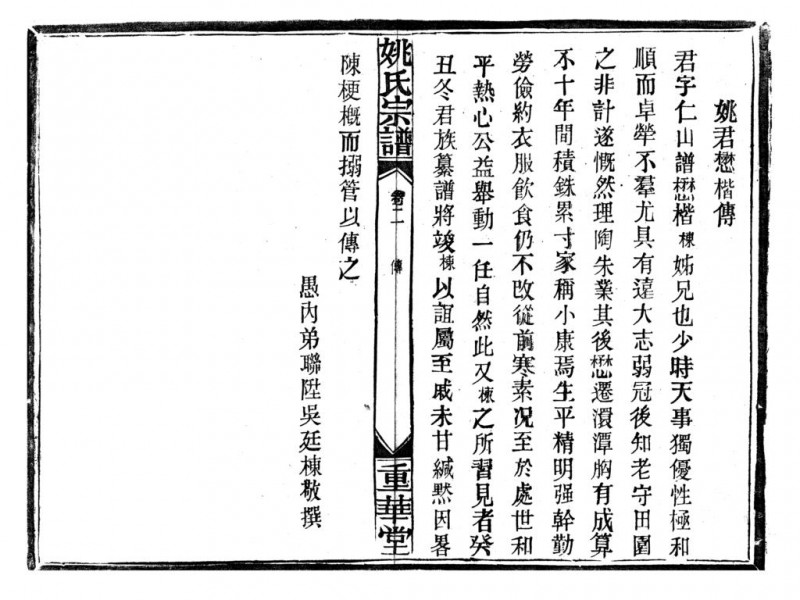 姚君懋楷傳
君字仁山譜懋楷棟姊兄也少時天事獨優性極和
順而卓犖不羣尤具有遠大志弱冠後知老守田園
之非計遂慨然理陶朱業其後懋遷濆潭胸有成算
不十年間積銖累寸家稱小康焉生平精明强幹勤
勞儉約衣服飲食仍不改從前寒素况至於處世和
平熱心公益舉動一任自然此又棟之所習見者癸
丑冬君族纂譜將竣棟以誼屬至戚未甘緘默因畧
姚氏宗譜
卷二
傳
重華堂
陳梗概而搦管以傳之
愚內弟聯陞吳廷棟敬撰